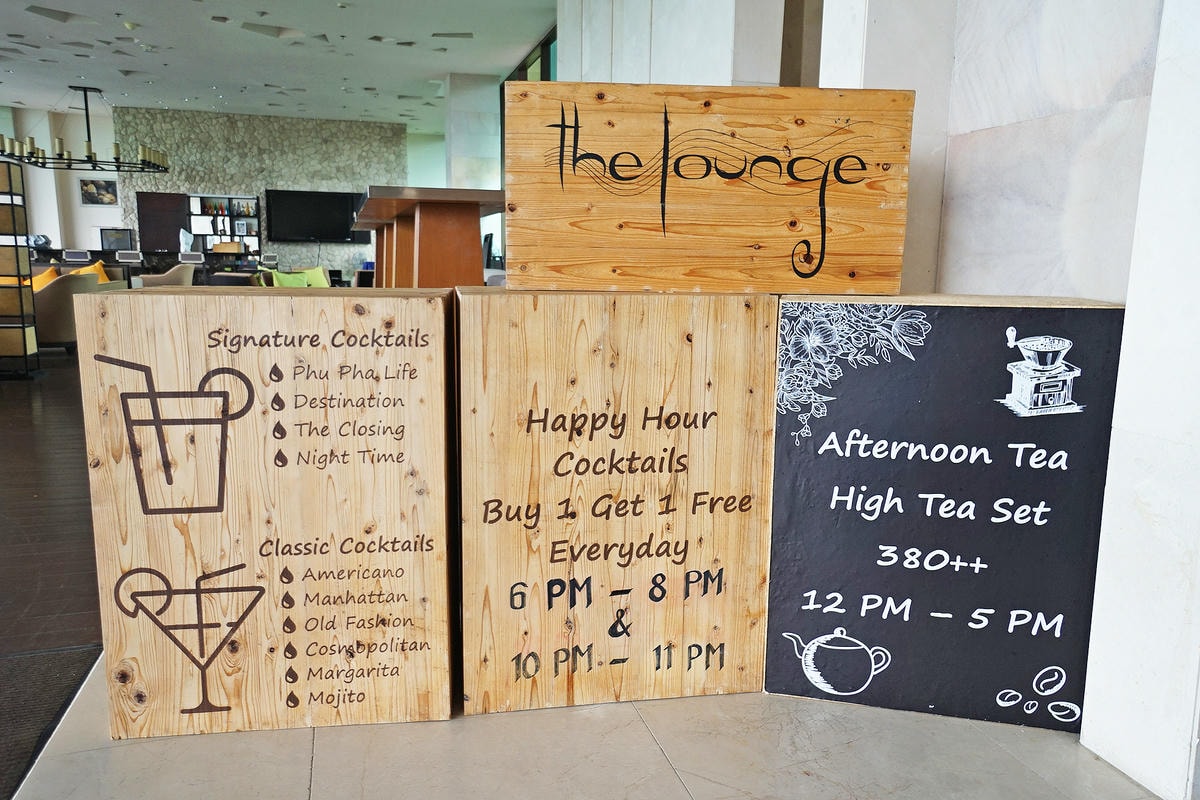 the lounge
Signature Cocktails
Phu Pha Life
Destination
The Closing
Night Time
Classic Cocktails
Americano
Manhattan
Old Fashion
Cosmopolitan
Margarita
Mojito
Happy Hour
Cocktails
Buy 1 Get 1 Free
Everyday
6 PM – 8 PM
&
10 PM – 11 PM
Afternoon Tea
High Tea Set
380++
12 PM – 5 PM